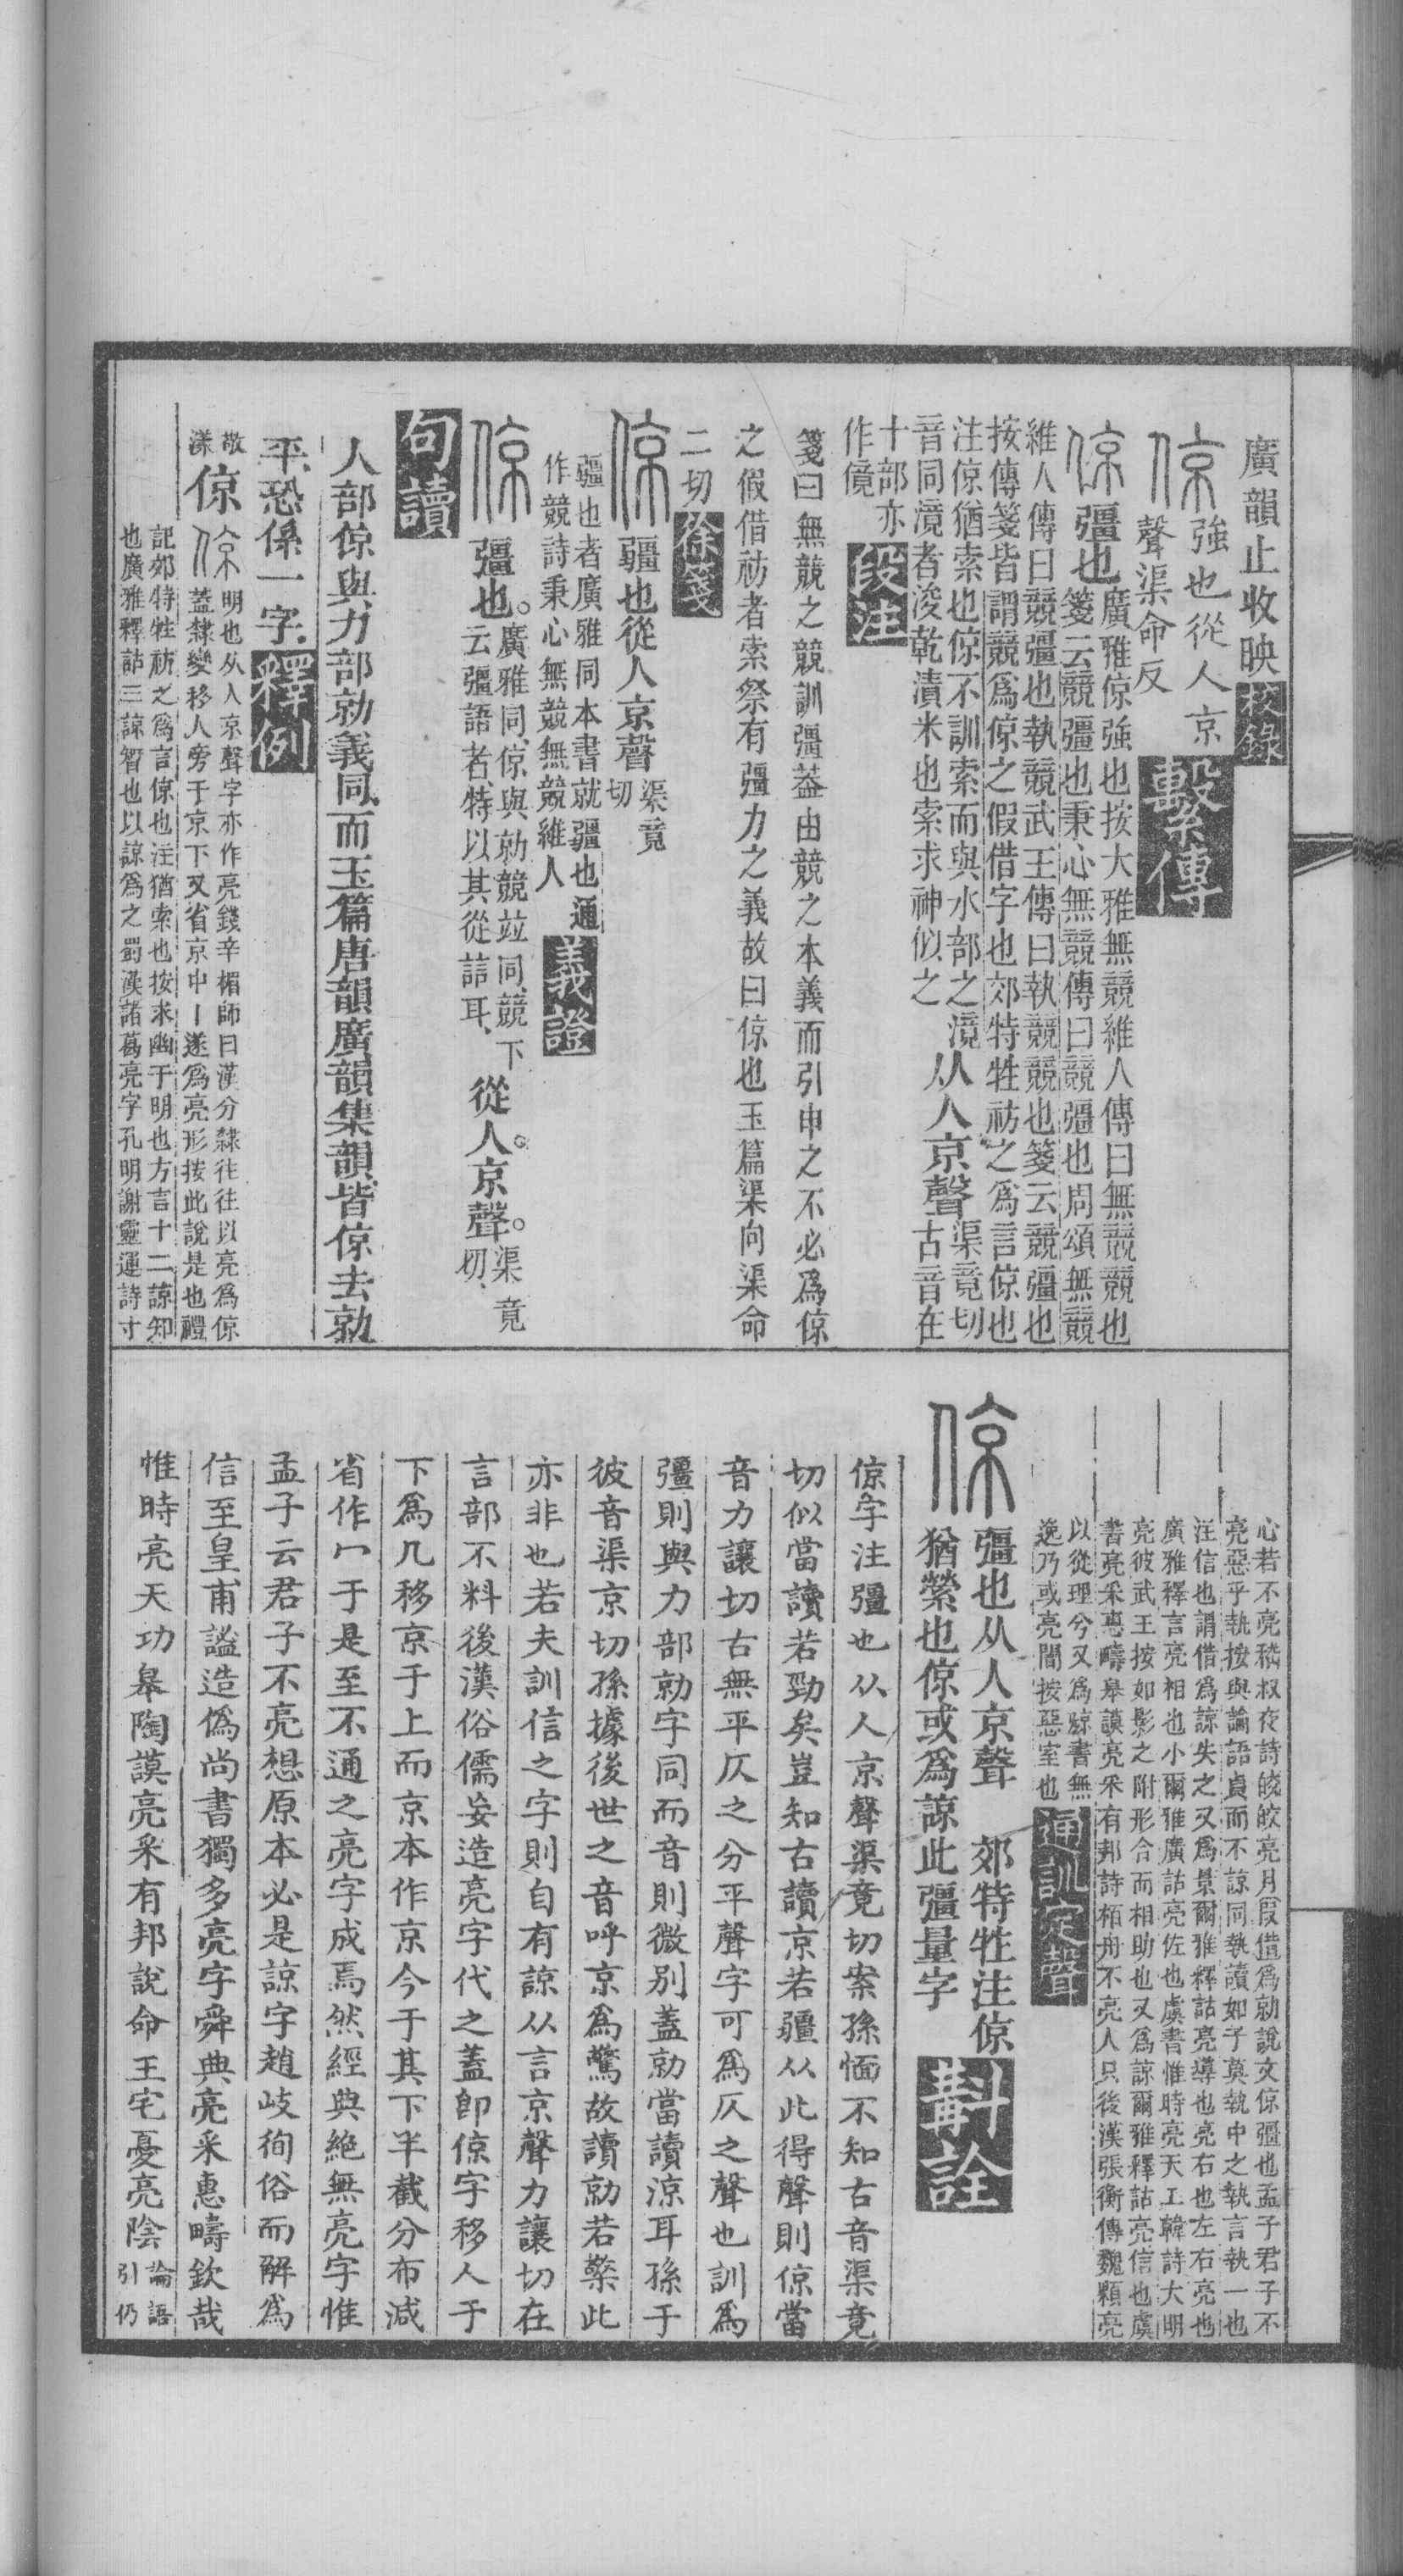 廣韻止收映校錄
倞強也從人京
聲渠命反
繫傳
倞彊也廣雅倞強也按大雅無競維人傳曰無競競也
箋云競彊也秉心無競傳曰競彊也周頌無競
維人傳曰競彊也執競武王傳曰執競競也箋云競彊也
按傳箋皆謂競爲倞之假借字也郊特牲祊之爲言倞也
注倞猶索也倞不訓索而與水部之滰
音同滰者浚乾漬米也索求神似之
从人京聲渠竟切
古音在
十部亦
作傹
段注
箋曰無競之競訓彊葢由競之本義而引申之不必爲倞
之假借祊者索祭有彊力之義故曰倞也玉篇渠向渠命
二切徐箋
倞彊也從人京聲渠竟
切
彊也者廣雅同本書就彊也通
作競詩秉心無競無競維人
義證
倞彊也。廣雅同、倞與勍競竝同、競下
云彊語者、特以其從誩耳、
從人。京聲。渠竟
切、
句讀
人部倞與力部勍義同、而玉篇唐韻廣韻集韻、皆倞去勍
平、恐係一字、釋例
敬
漾倞倞明也从人京聲字亦作亮錢辛楣師曰漢分隸往往以亮爲倞
蓋隸變移人旁于京下又省京中丨遂爲亮形按此說是也禮
記郊特牲祊之爲言倞也注猶索也按求幽于明也方言十二諒知
也廣雅釋詁三諒智也以諒爲之蜀漢諸葛亮字孔明謝靈運詩寸
心若不亮嵇叔夜詩皎皎亮月叚借爲勍說文倞彊也孟子君子不
亮惡乎執按與論語貞而不諒同執讀如子莫執中之執言執一也
注信也謂借爲諒失之又爲景爾雅釋詁亮導也亮右也左右亮也
廣雅釋言亮相也小爾雅廣詁亮佐也虞書惟時亮天工韓詩大明
亮彼武王按如影之附形合而相助也又爲諒爾雅釋詁亮信也虞
書亮采惠疇皋謨亮采有邦詩栢舟不亮人只後漢張衡傳魏顆亮
以從理兮又爲䣼書無
逸乃或亮闇按惡室也
通訓定聲
倞彊也从人京聲　郊特牲注倞
猶縈也倞或爲諒此彊量字
斠詮
倞字注彊也从人京聲渠竟切案孫愐不知古音渠竟
切似當讀若勁矣豈知古讀京若疆从此得聲則倞當
音力讓切古無平仄之分平聲字可爲仄之聲也訓爲
彊則與力部勍字同而音則微別蓋勍當讀涼耳孫于
彼音渠京切孫據後世之音呼京爲驚故讀勍若檠此
亦非也若夫訓信之字則自有諒从言京聲力讓切在
言部不料後漢俗儒妄造亮字代之蓋卽倞字移人于
下爲几移京于上而京本作京今于其下半截分布減
省作冖于是至不通之亮字成焉然經典絕無亮字惟
孟子云君子不亮想原本必是諒字趙岐徇俗而解爲
信至皇甫謐造僞尚書獨多亮字舜典亮采惠疇欽哉
惟時亮天功皋陶謨亮采有邦說命王宅憂亮陰論語
引仍